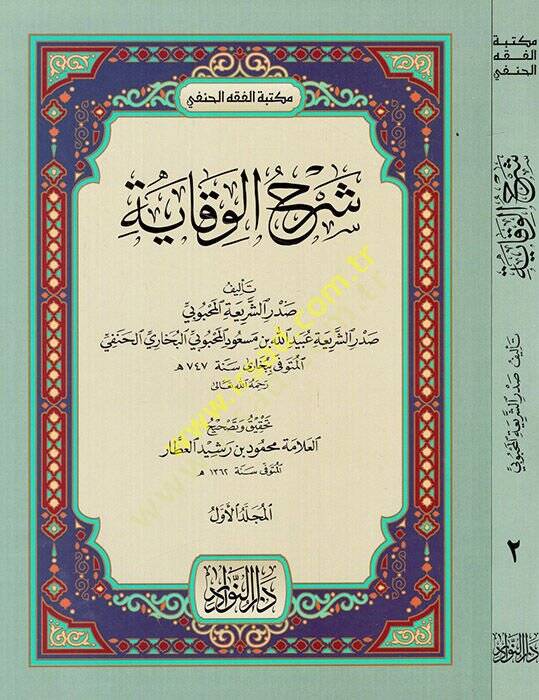 مكتبة الفقه الحنفي
شرح الوقاية
تأليف
صدر الشريعة المحبوبي
صدر الشريعة عبيد الله بن مسعود المحبوبي البخاري الحنفي
المتوفى ببخارى سنة ٧٤٧ هـ
رحمه الله تعالى
تحقيق وتصحيح
العلامة محمود بن رشيد العطار
المتوفى سنة ١٣٦٢ هـ
المجلد الأول
دار النوادر
مكتبة
الفقه
الحنفي
شرح الوقاية
تأليف صدر الشريعة المحبوبي
٢
دار النوادر